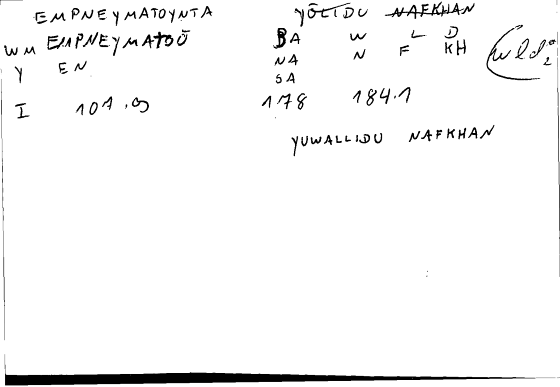 EMPNEYMATOYNTA YŌLIDU NAFKHAN
WM EMPNEYMATOŌ BA W L D wld₂
Y EN NA N F KH
SA
I 101.9 178 184.1
YUWALLIDU NAFKHAN